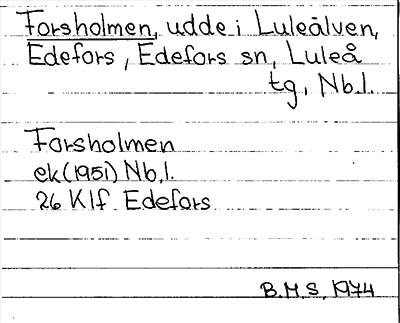 Forsholmen, udde i Luleälven,
Edefors, Edefors sn, Luleå
tg, Nb.l.
Forsholmen
ek (1951) Nb.l.
26 Klf Edefors
B.M.S. 1974